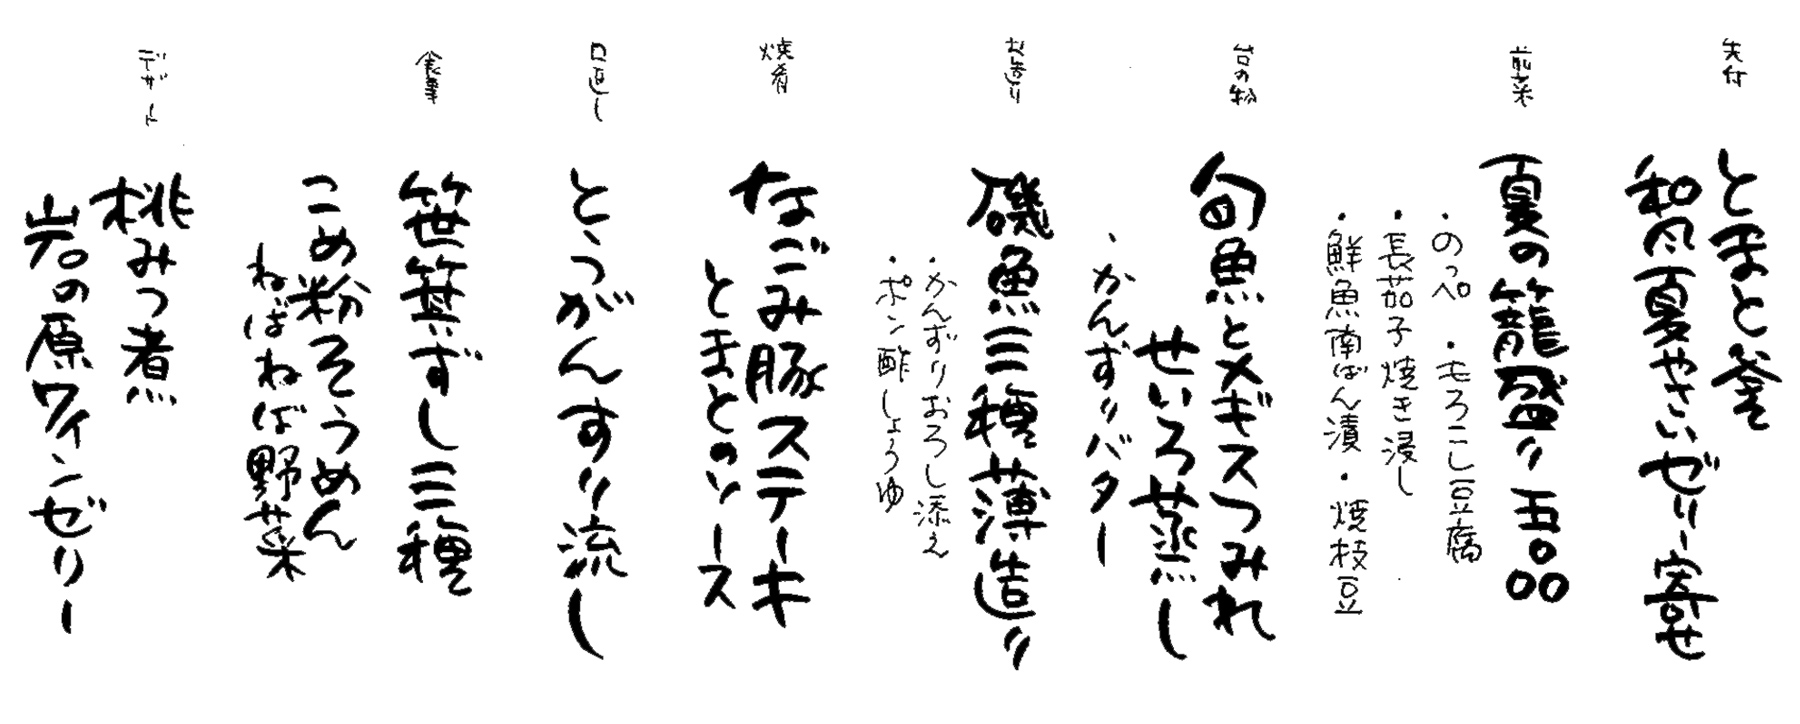 先付
とまと釜
和風夏やさいゼリー寄せ
前菜
夏の籠盛り 五品
・のっぺ ・もろこし豆腐
・長茄子焼き浸し
・鮮魚南ばん漬 ・焼枝豆
台の物
旬魚とメギスつみれ
せいろ蒸し
・かんずりバター
お造り
磯魚三種薄造り
・かんずりおろし添え
・ポン酢しょうゆ
焼肴
なごみ豚ステーキ
とまとのソース
口直し
とうがんすり流し
食事
笹箕ずし三種
こめ粉そうめん
ねばねば野菜
デザート
桃みつ煮
岩の原ワインゼリー